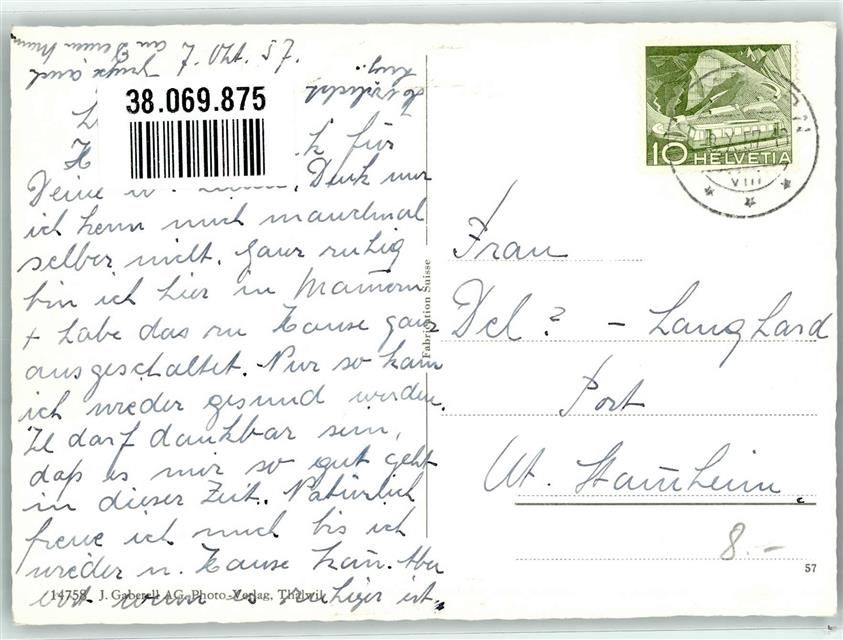 7. Okt. 57.
38.069.875
für
Deine Denk nur
ich kenn mich manchmal
selber nicht. Ganz ruhig
bin ich hier in Mamern
+ habe das zu Hause ganz
ausgeschaltet. Nur so kann
ich wieder gesund werden.
Ich darf dankbar sein,
daß es mir so gut geht
in dieser Zeit. Natürlich
freue ich mich bis ich
wieder n. Hause kann. Aber
erst wenn es ruhiger ist.
14758 J. Gaberell AG. Photo-Verlag, Thalwil
Fabrication Suisse
10 HELVETIA
VIII
Frau
Del? - Langhard
Post
Ut. Stam̅heim.
8.-
57